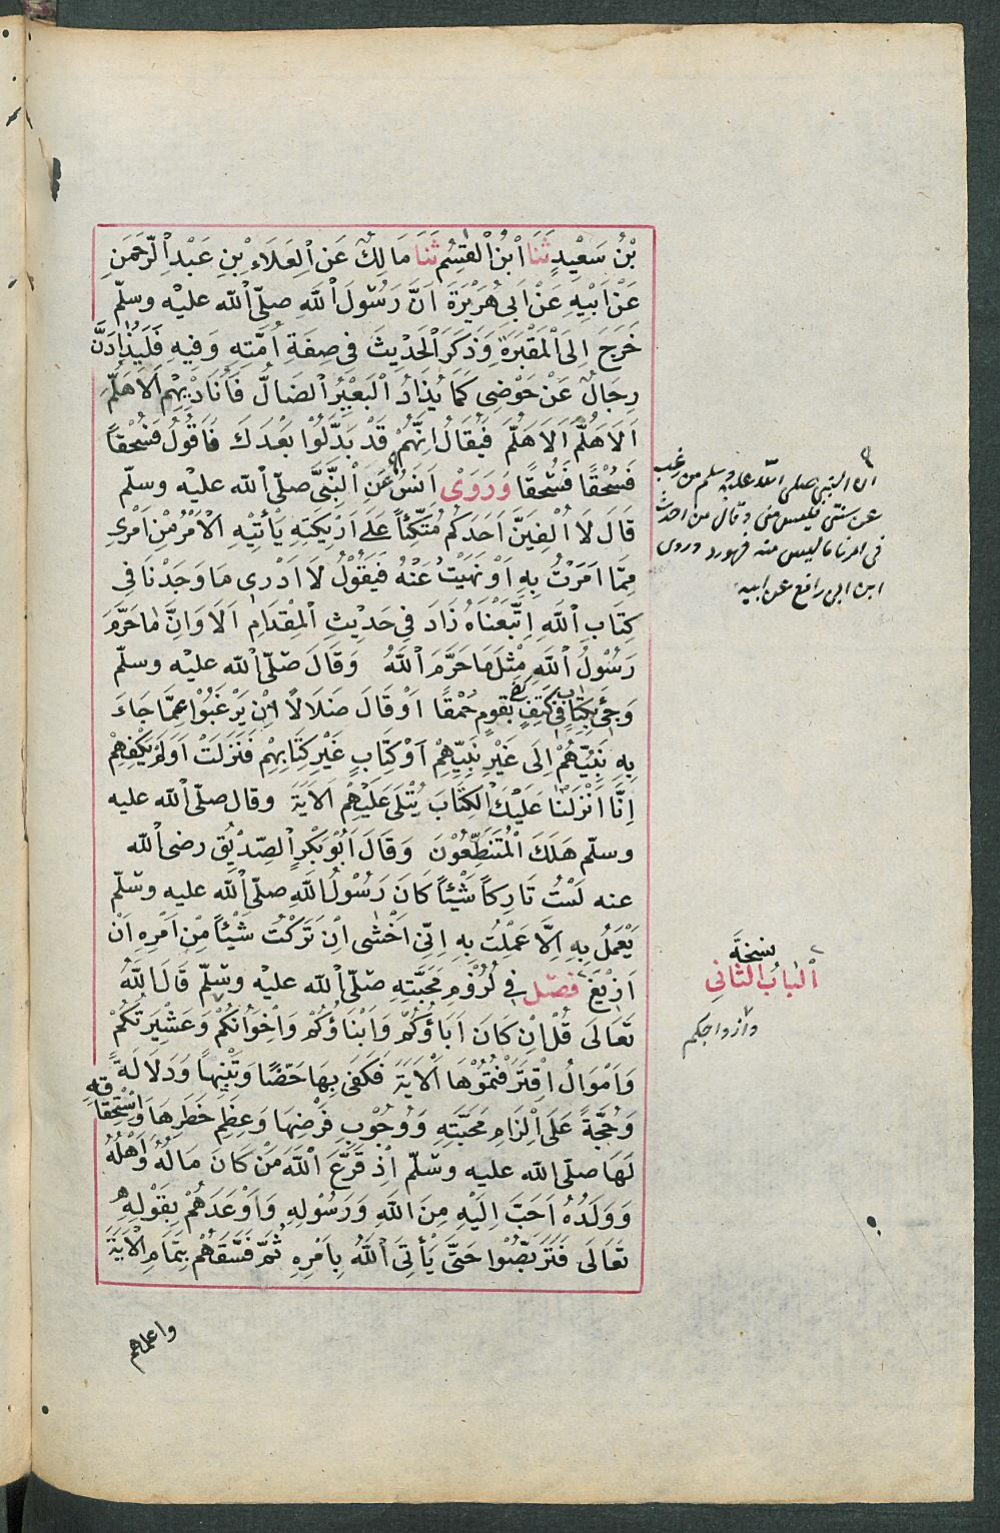 بْنُ سَعِيْدٍ ثَنَا ابْنُ الْقٰسِمِ ثَنَا مَالِكٌ عَنِ الْعَلَاءِ بْنِ عَبْدِ الرَّحْمَنِ
عَنْ اَبِيْهِ عَنْ اَبِي هُرَيْرَةَ اَنَّ رَسُوْلَ اللهِ صلّى الله عليه وسلّم
خَرَجَ اِلَى الْمَقْبَرَةِ وَذَكَرَ الْحَدِيْثَ فِي صِفَةِ اُمَّتِهِ وَفِيهِ فَلَيُذَادَنَّ
رِجَالٌ عَنْ حَوْضِى كَمَا يُذَادُ الْبَعِيْرُ الضَالُّ فَاُنَادِيْهِمْ اَلَا هَلُمَّ
اَلَا هَلُمَّ اَلَا هَلُمَّ فَيُقَالُ اِنَّهُمْ قَدْ بَدَّلُوْا بَعْدَكَ فَاَقُوْلُ فَسُحْقًا
فَسُحْقًا فَسُحْقًا وَرَوَىْ اَنَسٌ عَنِ النَّبِيَّ صلّى الله عليه وسلّم
قَالَ لَا اُلْفِيَنَّ اَحَدَكُمْ مُتَّكِئاً عَلَى اَرِيْكَتِهِ يَأْتِيْهِ الْاَمْرُ مِنْ اَمْرِى
مِمَّا اَمَرْتُ بِهِ اَوْ نَهَيْتُ عَنْهُ فَيَقُوْلُ لَا اَدْرِى مَا وَجَدْنَا فِي
كِتَابِ اللهِ اِتَّبَعْنَاهُ زَادَ فِي حَدِيْثِ الْمِقْدَامِ اَلَا وَاِنَّ مَا حَرَّمَ
رَسُوْلُ اللهِ مِثْلُ مَا حَرَّمَ اللهُ وَقَالَ صَلّى الله عليه وسلّم
وَجِئَ بِكِتَابٍ فِي كَتِفٍ بِقَوْمٍ حُمْقًا اَوْ قَالَ ضَلَالًا اَنْ يَرْغَبُوْا عَمَّا جَاءَ
بِهِ نَبِيُّهُمْ اِلَى غَيْرِ نَبِيِّهِمْ اَوْ كِتَابٍ غَيْرِ كِتَابِهِمْ فَنَزَلَتْ اَوَلَمْ يَكْفِهِمْ
اِنَّا اَنْزَلْنَا عَلَيْكَ الْكِتَابَ يُتْلَى عَلَيْهِمْ الْاَيَةَ وقال صلّى الله عليه
وسلّم هَلَكَ الْمُتَنَطِّعُوْنَ وَقَالَ اَبُوْبَكْرٍ الصِّدِّيْقُ رضى الله
عنه لَسْتُ تَارِكاً شَيْئاً كَانَ رَسُوْلُ اللهِ صلّى الله عليه وسّلّم
يَعْمَلُ بِهِ اِلَّا عَمِلْتُ بِهِ اِنِّى اَخْشٰى اِنْ تَرَكْتُ شَيْئاً مِنْ اَمْرِهِ اَنْ
اَزِيْغَ فصّل فِي لُزُوْمِ مَحَبَّتِهِ صلّى الله عليه وسّلّم قَالَ اللهُ
تَعَالَى قُلْ اِنْ كَانَ اٰبَاؤُكُمْ وَاَبْنَاؤُكُمْ وَاِخْوَانُكُمْ وَعَشِيْرَتُكُمْ
وَاَمْوَالُ اقْتَرَفْتُمُوْهَا الْاَيَةَ فَكَفَى بِهَا حَضًّا وَتَنْبِيْهاً وَدَلَالَةً
وَحُجَّةً عَلَى اِلْزَامِ مَحَبَّتِهِ وَوُجُوْبِ فَرْضِهَا وَعِظَمِ خَطَرِهَا وَاسْتِحْقَاقِهِ
لَهَا صلّى الله عليه وسّلّم اِذْ قَرَّعَ اللهُ مَنْ كَانَ مَالُهُ وَاَهْلُهُ
وَوَلَدُهُ اَحَبَّ اِلَيْهِ مِنَ اللهِ وَرَسُوْلِهِ وَاَوْعَدَهُمْ بِقَوْلِهِ
تَعَالَى فَتَرَبَّصُوْا حَتَّى يَأْتِيَ اللهُ بِاَمْرِهِ ثُمَّ فَسَّقَهُمْ بِتَمَامِ الْاَيَةِ
واعلمهم
ان النبى صلى الله عليه وسلم من رغب
عن سنتى فليس منى وقال من احدث
فى امرنا ما ليس منه فهو رد وروى
ابن ابى رافع عن ابيه
نسخة
اَلْبَابُ الثَّانِى
وازواجكم